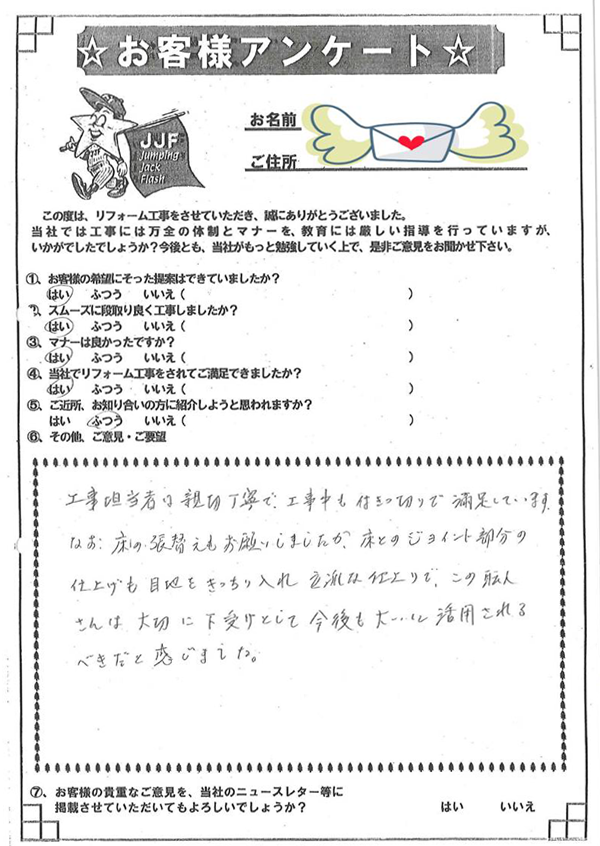 ☆お客様アンケート☆
JJF
Jumping
Jack
Flash
お名前
ご住所
この度は、リフォーム工事をさせていただき、誠にありがとうございました。
当社では工事には万全の体制とマナーを、教育には厳しい指導を行っていますが、
いかがでしたでしょうか?今後とも、当社がもっと勉強していく上で、是非ご意見をお聞かせ下さい。
①、お客様の希望にそった提案はできていましたか?
はい ふつう いいえ( )
②、スムーズに段取り良く工事しましたか?
はい ふつう いいえ( )
③、マナーは良かったですか?
はい ふつう いいえ( )
④、当社でリフォーム工事をされてご満足できましたか?
はい ふつう いいえ( )
⑤、ご近所、お知り合いの方に紹介しようと思われますか?
はい ふつう いいえ( )
⑥、その他、ご意見・ご要望
工事担当者は親切丁寧で、工事中も付きっ切りで満足しています。
なお、床の張替えもお願いしましたが、床とのジョイント部分の
仕上げも目地をきっちり入れ立派な仕上りで、この職人
さんは大切に下受けとして今後も大いに活用される
べきだと感じました。
⑦、お客様の貴重なご意見を、当社のニュースレター等に
掲載させていただいてもよろしいでしょうか? はい いいえ